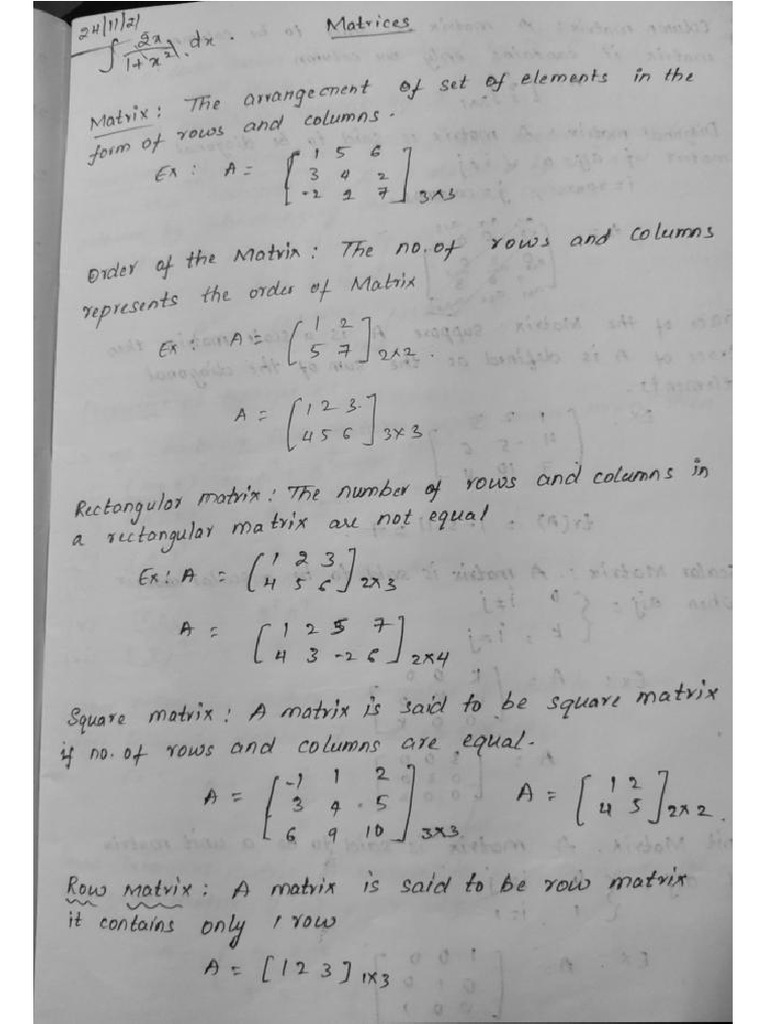 24/11/21 Matrices
∫ 2x/1+x² . dx .
Matrix : The arrangecment of set of elements in the
form of rows and columns .
Ex : A = [1 5 6
3 4 2
-2 2 7] 3x3
Order of the Matrix : The no. of rows and columns
represents the order of Matrix
Ex : A = [1 2
5 7] 2x2 .
A = [1 2 3
4 5 6] 3x3
Rectangular matrix : The number of rows and columns in
a rectangular matrix are not equal
Ex : A = [1 2 3
4 5 6] 2x3
A = [1 2 5 7
4 3 -2 6] 2x4
Square matrix : A matrix is said to be square matrix
if no. of rows and columns are equal .
A = [-1 1 2
3 4 5
6 9 10] 3x3 A = [1 2
4 5] 2x2
Row Matrix : A matrix is said to be row matrix
it contains only 1 row
A = [1 2 3] 1x3